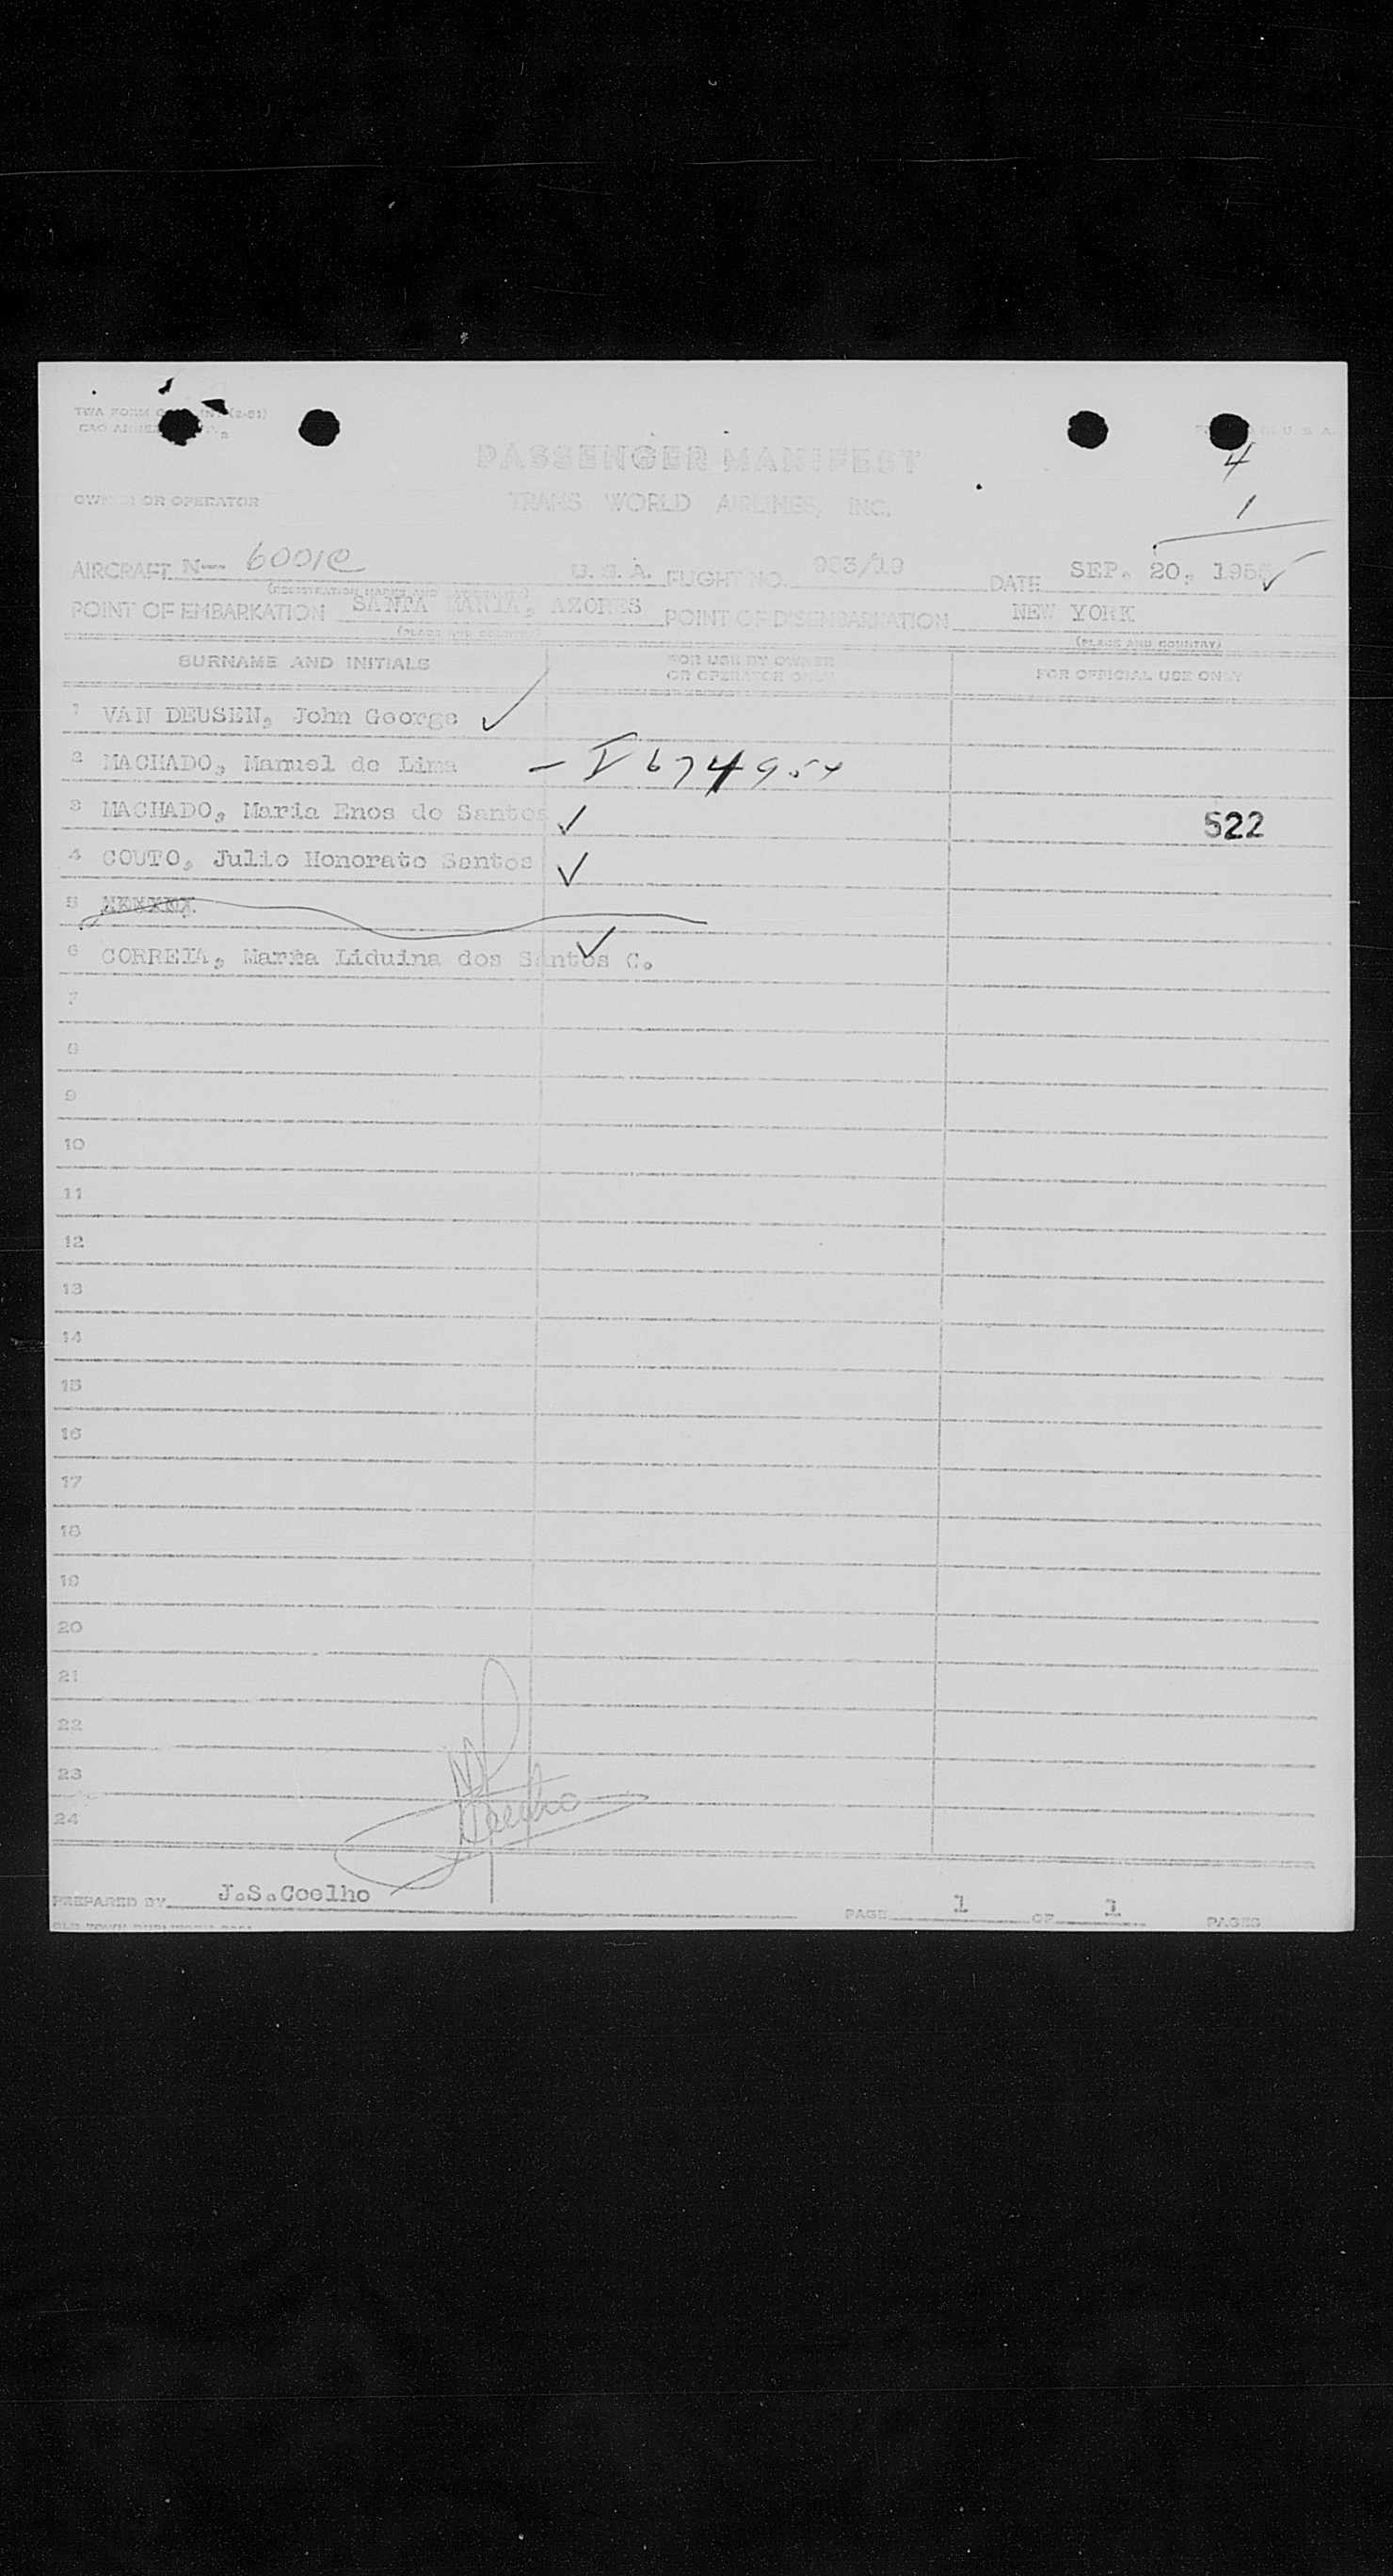 TWA FORM
PASSENGER MANIFEST
4
OWNER OR OPERATOR TRANS WORLD AIRLINES, INC.
1
AIRCRAFT N-- U. S. A. FLIGHT NO. DATE SEP. 20, 195
POINT OF EMBARKATION SANTA MARIA, AZORES POINT OF DISEMBARKATION NEW YORK
(PLACE AND COUNTRY)
SURNAME AND INITIALS FOR USE BY OWNER OR OPERATOR ONLY FOR OFFICIAL USE ONLY
1 VAN DEUSEN, John George ✓
2 MACHADO, Manuel de Lima
3 MACHADO, Maria Enos do Santos ✓ 522
4 COUTO, Julio Honorato Santos ✓
5
6 CORREIA, Maria Liduina dos Santos C. ✓
7
8
9
10
11
12
13
14
15
16
17
18
19
20
21
22
23
24
PREPARED BY J.S.Coelho PAGE 1 OF 1 PAGES